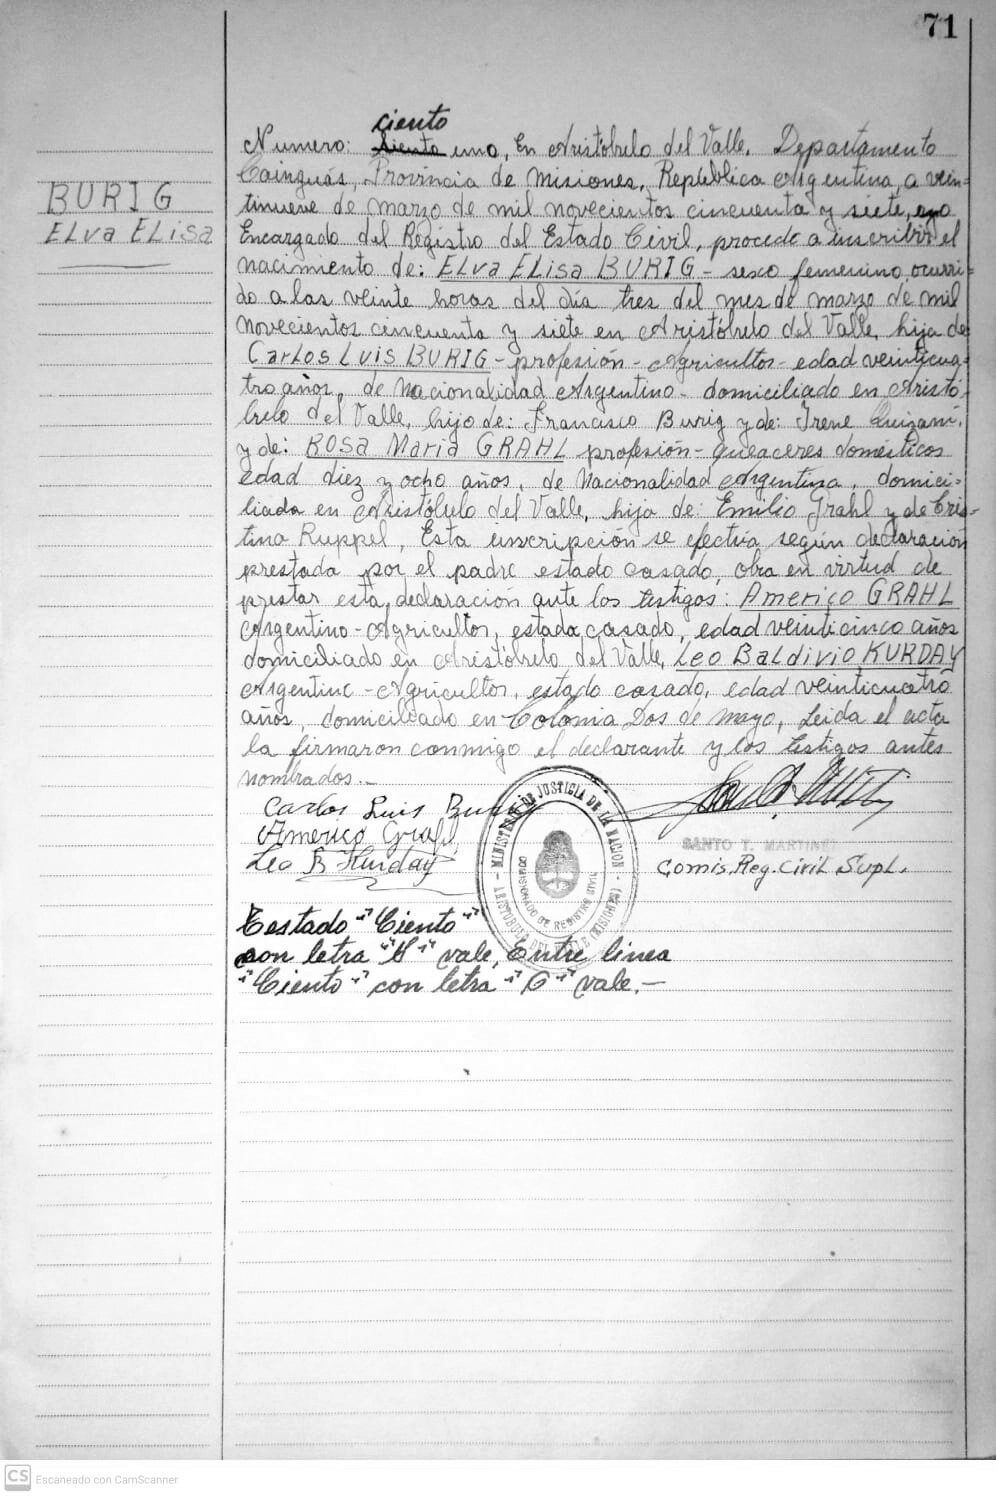 71
BURIG
ELva ELisa
ciento
Numero: Siento uno, En Aristóbulo del Valle, Departamento
Cainguás, Provincia de Misiones, República Argentina, a vein=
tinueve de marzo de mil novecientos cincuenta y siete, yo
Encargado del Registro del Estado Civil, procedo a inscribir el
nacimiento de: ELva ELisa BURIG - sexo femenino, ocurri=
do a las veinte horas del día tres del mes de marzo de mil
novecientos cincuenta y siete en Aristóbulo del Valle, hija de
CarLos LUIS BURIG - profesión - Agricultor - edad veinticua=
tro años, de Nacionalidad Argentino - domiciliado en Aristó=
bulo del Valle, hijo de: Francisco Burig y de: Irene
y de: ROSA MarIa GRAHL profesión - queaceres domésticos
edad diez y ocho años, de Nacionalidad Argentina, domici=
liada en Aristóbulo del Valle, hija de: Emilio Grahl y de Cris=
tina Ruppel, Esta inscripción se efectua según declaración
prestada por el padre estado casado, obra en virtud de
prestar esta declaración ante los testigos: Americo GRAHL
Argentino - Agricultor, estada casado, edad veinticinco años
domiciliado en Aristóbulo del Valle, Leo BaLdivio KURDAY
Argentino - Agricultor, estado casado, edad veinticuatro
años, domiciliado en Colonia Dos de Mayo, Leida el acta
la firmaron conmigo el declarante y los testigos antes
nombrados.-
Carlos Luis Burig
Americo Grahl
Leo B Kurday
MINISTERIO DE JUSTICIA DE LA NACION
COMISIONADO DE REGISTRO CIVIL
ARISTOBULO DEL VALLE (MISIONES)
SANTO T. MARTINEZ
Comis. Reg. Civil Supl.
Testado "Ciento"
con letra "S" vale, Entre linea
"Ciento" con letra "C" vale.-
CS Escaneado con CamScanner